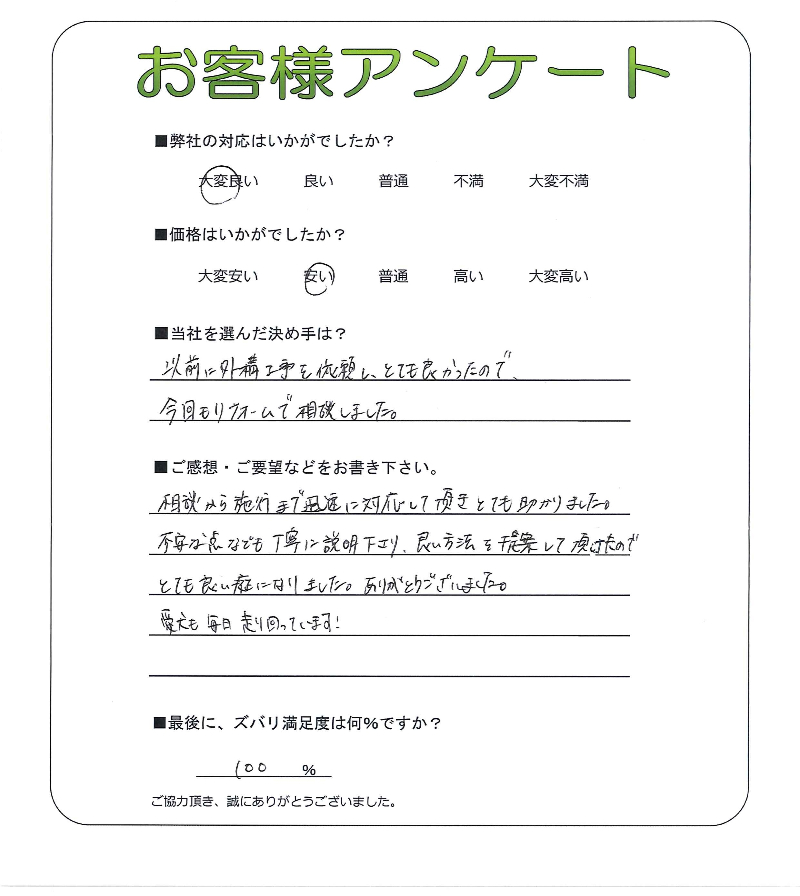 お客様アンケート
■弊社の対応はいかがでしたか？
大変良い 良い 普通 不満 大変不満
■価格はいかがでしたか？
大変安い 安い 普通 高い 大変高い
■当社を選んだ決め手は？
以前に外構工事を依頼し、とても良かったので、
今回もリフォームで相談しました。
■ご感想・ご要望などをお書き下さい。
相談から施行まで迅速に対応して頂きとても助かりました。
不安な点なども丁寧に説明下さり、良い方法を提案して頂けたので
とても良い庭になりました。ありがとうございました。
愛犬も毎日走り回っています！
■最後に、ズバリ満足度は何％ですか？
100 ％
ご協力頂き、誠にありがとうございました。